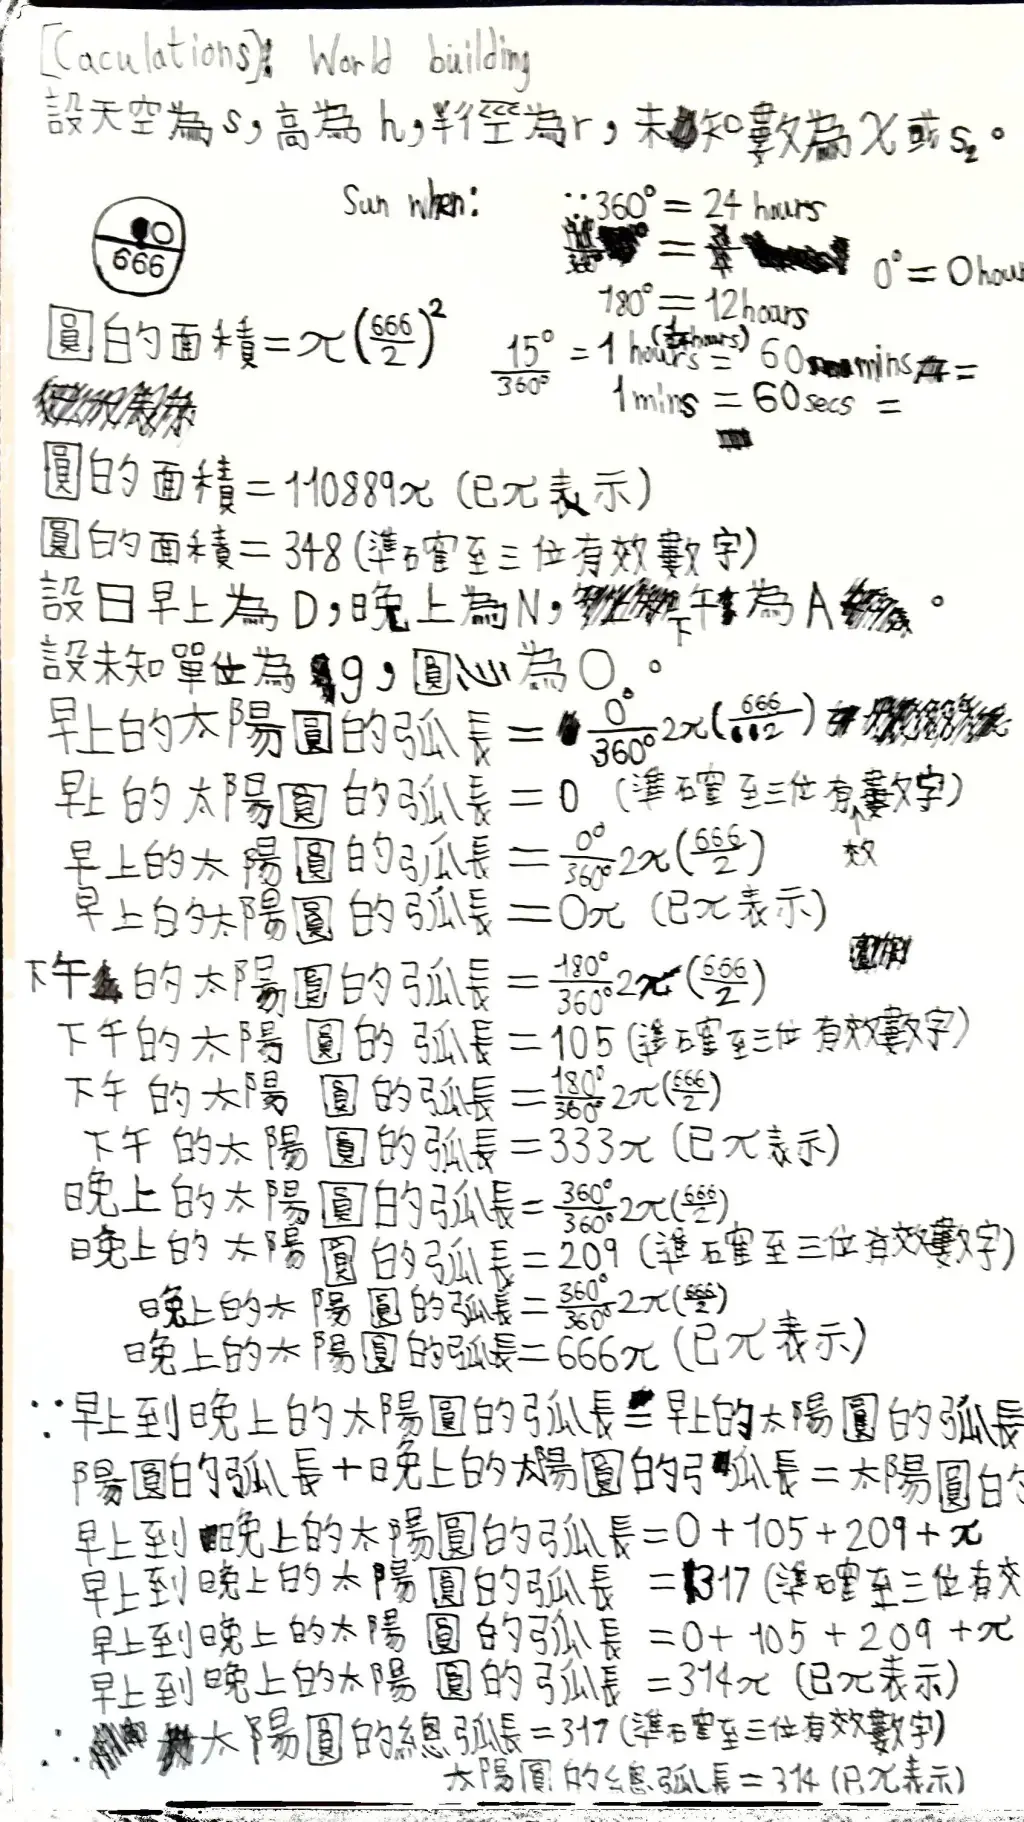 [Caculations]: World building
設天空為s,高為h,半徑為r,未知數為x或s₂。
Sun when:
∵360°=24 hours
0
666
0°=0hour
180°=12hours
圓的面積=π(666/2)²
15°/360°=1 hours=60mins=
1mins=60secs=
圓的面積=110889π(已π表示)
圓的面積=348(準確至三位有效數字)
設日早上為D,晚上為N,下午為A。
設未知單位為g,圓心為O。
早上的太陽圓的弧長=0°/360°2π(666/2)
早上的太陽圓的弧長=0(準確至三位有效數字)
早上的太陽圓的弧長=0°/360°2π(666/2)
早上的太陽圓的弧長=0π(已π表示)
下午的太陽圓的弧長=180°/360°2π(666/2)
下午的太陽圓的弧長=105(準確至三位有效數字)
下午的太陽圓的弧長=180°/360°2π(666/2)
下午的太陽圓的弧長=333π(已π表示)
晚上的太陽圓的弧長=360°/360°2π(666/2)
晚上的太陽圓的弧長=209(準確至三位有效數字)
晚上的太陽圓的弧長=360°/360°2π(666/2)
晚上的太陽圓的弧長=666π(已π表示)
∵早上到晚上的太陽圓的弧長=早上的太陽圓的弧長
陽圓的弧長+晚上的太陽圓的弧長=太陽圓的
早上到晚上的太陽圓的弧長=0+105+209+π
早上到晚上的太陽圓的弧長=317(準確至三位有效
早上到晚上的太陽圓的弧長=0+105+209+π
早上到晚上的太陽圓的弧長=314π(已π表示)
∴太陽圓的總弧長=317(準確至三位有效數字)
太陽圓的總弧長=314(已π表示)